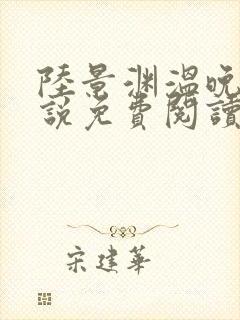 陸景渊溫晚
說免費閱讀
宋建華